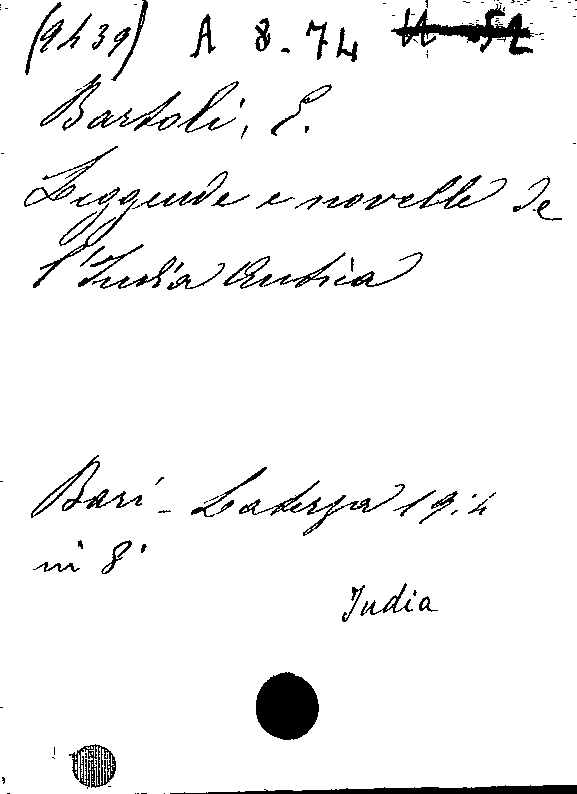 (9439) A 8-74
Bartoli, E.
Leggende e novelle de
l'India Antica
Bari - Laterza 1914
in 8°
India